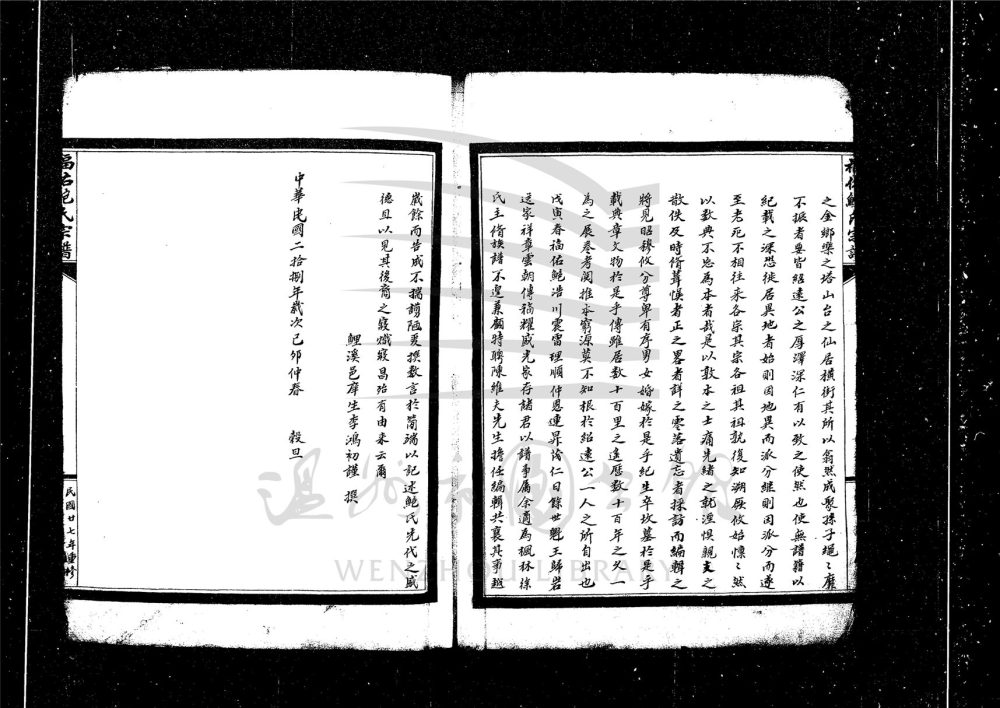 之金鄉樂之塔山台之仙居橫街其所以翕然成聚孫子綿〻靡
不振者要皆紹遠公之厚澤深仁有以致之使然也使無譜籍以
紀載之深恐徙居異地者始則因地異而派分繼則因派分而遂
至老死不相往來各宗其宗各祖其祖孰復知溯厥攸始懍〻然
以數典不忘為本者哉是以敦本之士痛先緒之就湮懼親支之
散佚及時脩葺悞者正之畧者詳之零落遺忘者採訪而編輯之
將見昭穆攸分尊卑有序男女婚嫁於是乎紀生卒坟墓於是乎
載典章文物於是乎傳雖居數十百里之遙歷數千百年之久一
為之展卷考閱推本窮源莫不知根於紹遠公一人之所自出也
戊寅春福佑鮑浩川震雷理順仲恩連昇 仁日餘世魁王歸岩
送家祥章雲朝傳稿耀盛光蒙存諸君以譜事屬余適為楓林徐
氏主脩族譜不遑兼顧特聘陳維夫先生擔任編輯共襄其事越
歲餘而告成不揣譾陋爰撰數言於簡端以記述鮑氏先代之盛
德且以見其後裔之寖熾寖昌殆有由来云爾
鯉溪邑庠生李鴻初謹 撰
中華民國二拾捌年歲次己卯仲春 穀旦
福佑鮑氏宗譜
民國廿七年重修
福佑鮑氏宗譜
溫州市圖書館
WENZHOU LIBRARY